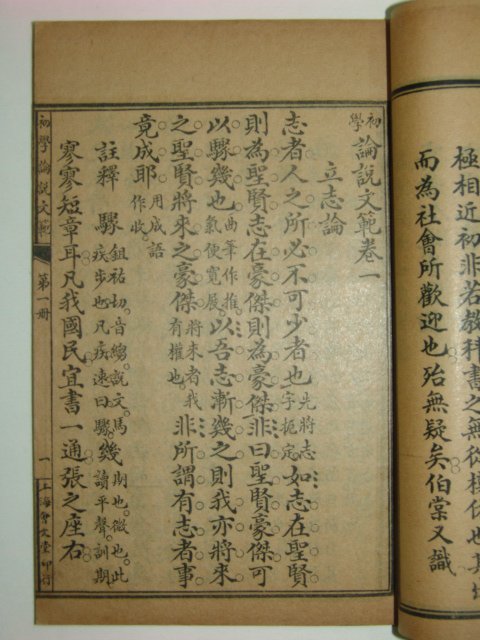 極相近初非若教科書之無從模仿也其
而為社會所歡迎也殆無疑矣伯棠又識
初學論說文範卷一
立志論
志者人之所必不可少者也先將志字扼定如志在聖賢
則為聖賢志在豪傑則為豪傑非曰聖賢豪傑可
以驟幾也曲筆作推氣便寬展以吾志漸幾之則我亦將來
之聖賢將來之豪傑將來者我有權也非所謂有志者事
竟成耶用成語作收
註釋 驟鉏祐切音縐說文馬疾步也凡疾速曰驟幾期也微也此讀平聲訓期
寥寥短章耳凡我國民宜書一通張之座右
初學論說文範
第一册
一
上海會文堂印行